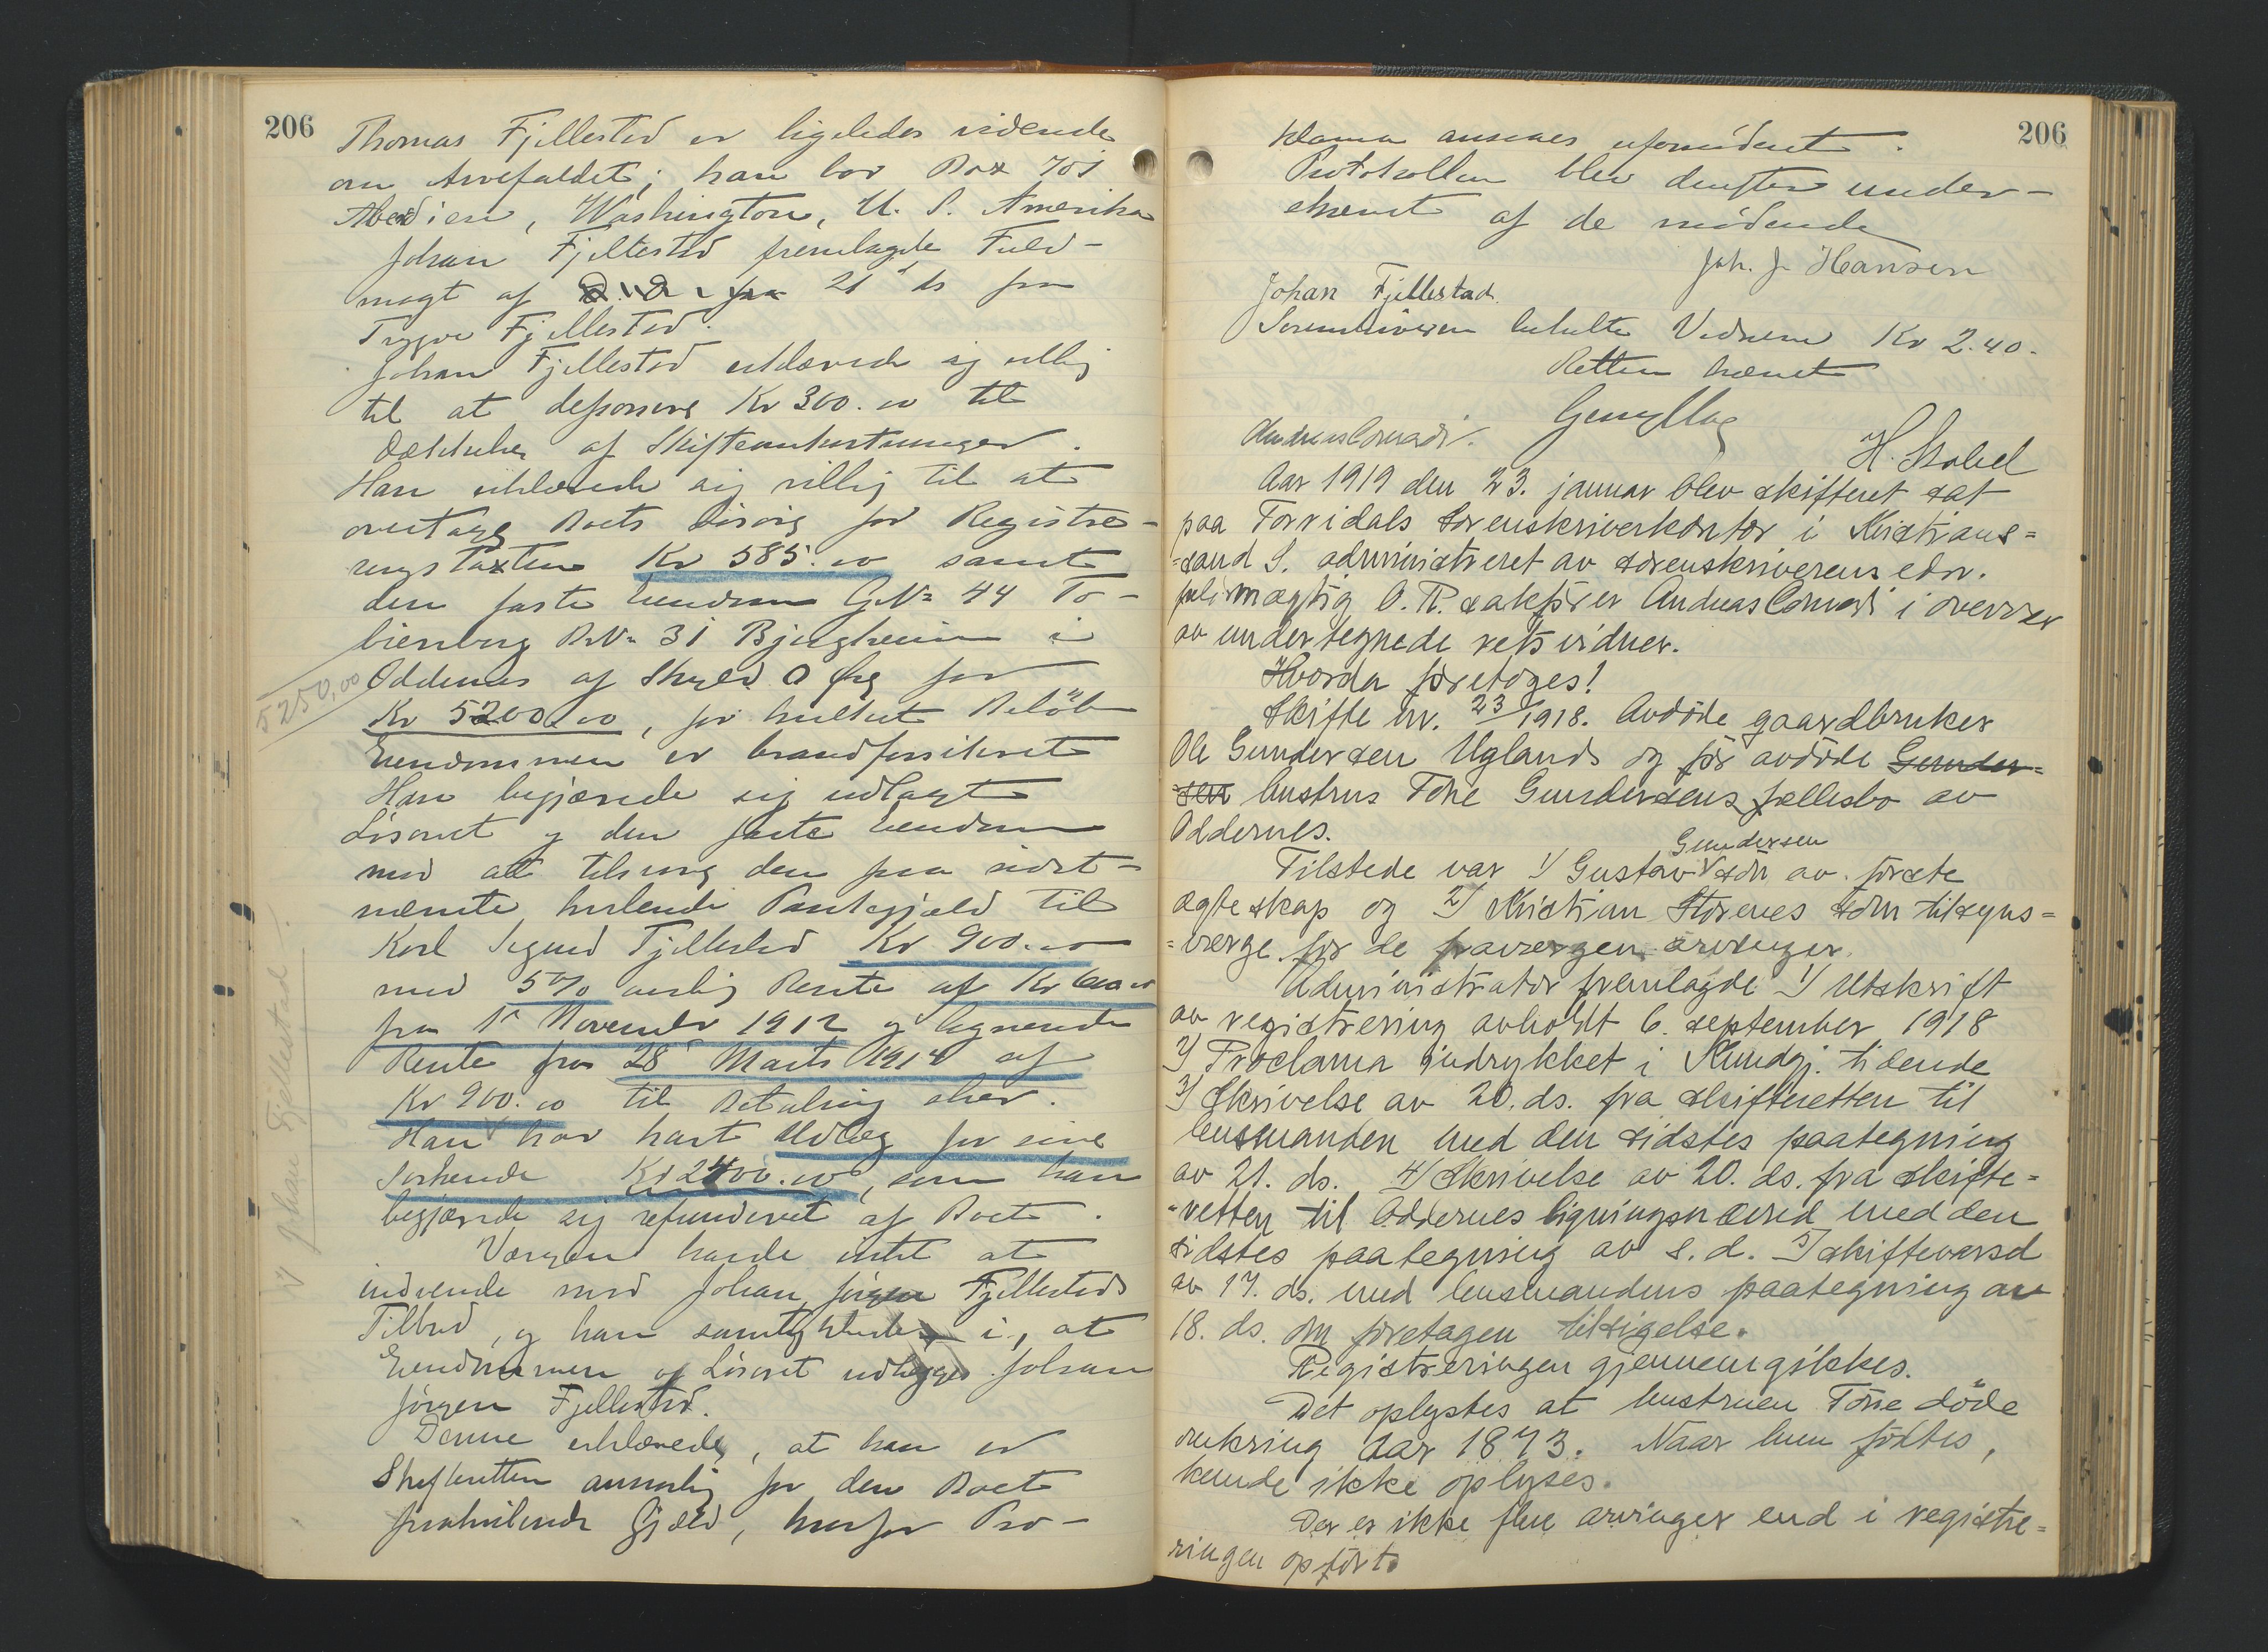 206
Thomas Fjellestad er ligeledes vidende
om Arvefaldet; han bor Box 701
Aberdien, Washington, U. S. Amerika
Johan Fjellestad fremlagde Fuld-
magt af 21' ds fra
Trygve Fjellestad.
Johan Fjellestad erklærede sig villig
til at deponere Kr 300.00 til
Dækkelse af Skifteomkostninger.
Han erklærede sig villig til at
overtage Boets Løsøre for Registre-
ringstaxten Kr 585.00 samt
den faste Eiendom GNo 44 To-
bienborg BNo 31 Bjergheim i
Oddernes af Skyld 9 Øre for
5250,00
Kr 5200.00, for hvilket Beløb
Eiendommen er brandforsikret
Han begjærede sig udlagt
Løsøret og den faste Eiendom
mod at tilsvare den paa sidst-
nævnte heftende Pantegjæld til
Karl Sigurd Fjellestad Kr 900.00
med 5% aarlig Rente af Kr 600.00
fra 1' November 1912 og lignende
Rente fra 28' Marts 1914 af
Kr 900.00 til Betaling sker.
Han har havt Udlæg for sine
Søskende Kr 2400.00, som han
begjærede sig refunderet af Boet.
Værgen havde intet at
indvende mod Johan Jørgen Fjellestads
Tilbud, og han samtykkede i, at
Eiendommen og Løsøret udlægges Johan
Jørgen Fjellestad.
Denne erklærede, at han er
Skifteretten ansvarlig for den Boet
paahvilende Gjæld, hvorfor Pro-
V Johan Fjellestad
206
klama ansees ufornødent.
Protokollen blev derefter under-
skrevet af de mødende
Joh. J. Hansen
Johan Fjellestad.
Sorenskriveren betalte Vidnerne Kr 2.40.
Retten hævet
Andreas Conradi.
H. Stabel
Aar 1919 den 23. januar blev skifteret sat
paa Torridals sorenskriverkontor i Kristians=
=sand S. administreret av sorenskriverens edsv.
fuldmægtig O. R. sakfører Andreas Conradi i overvær
av undertegnede retsvidner.
Hvorda foretoges!
Skifte nr. 23/1918. Avdøde gaardbruker
Ole Gundersen Uglands og før avdøde Gunder=
sen hustrus Tone Gundersens fællesbo av
Oddernes.
Gundersen
Tilstede var 1) Gustav søn av første
ægteskap og 2) Kristian Støenes som tilsyns=
=værge for de fraværgen arvinger.
Administrator fremlagde 1) Utskrift
av registrering avholdt 6. september 1918
2) Proclama indrykket i Kundgj. tidende
3) Skrivelse av 20. ds. fra skifteretten til
lensmanden med den sidstes paategning
av 21. ds. 4) Skrivelse av 20. ds. fra skifte=
=retten til Oddernes ligningsnævnd med den
sidstes paategning av s. d. 5) skiftevarsel
av 17. ds. med lensmandens paategning av
18. ds. om foretagen tilsigelse.
Registreringen gjennemgikkes.
Det oplystes at hustruen Tone døde
omkring aar 1873. Naar hun fødtes,
kunde ikke oplyses.
Der er ikke flere arvinger end i registre=
ringen opført.